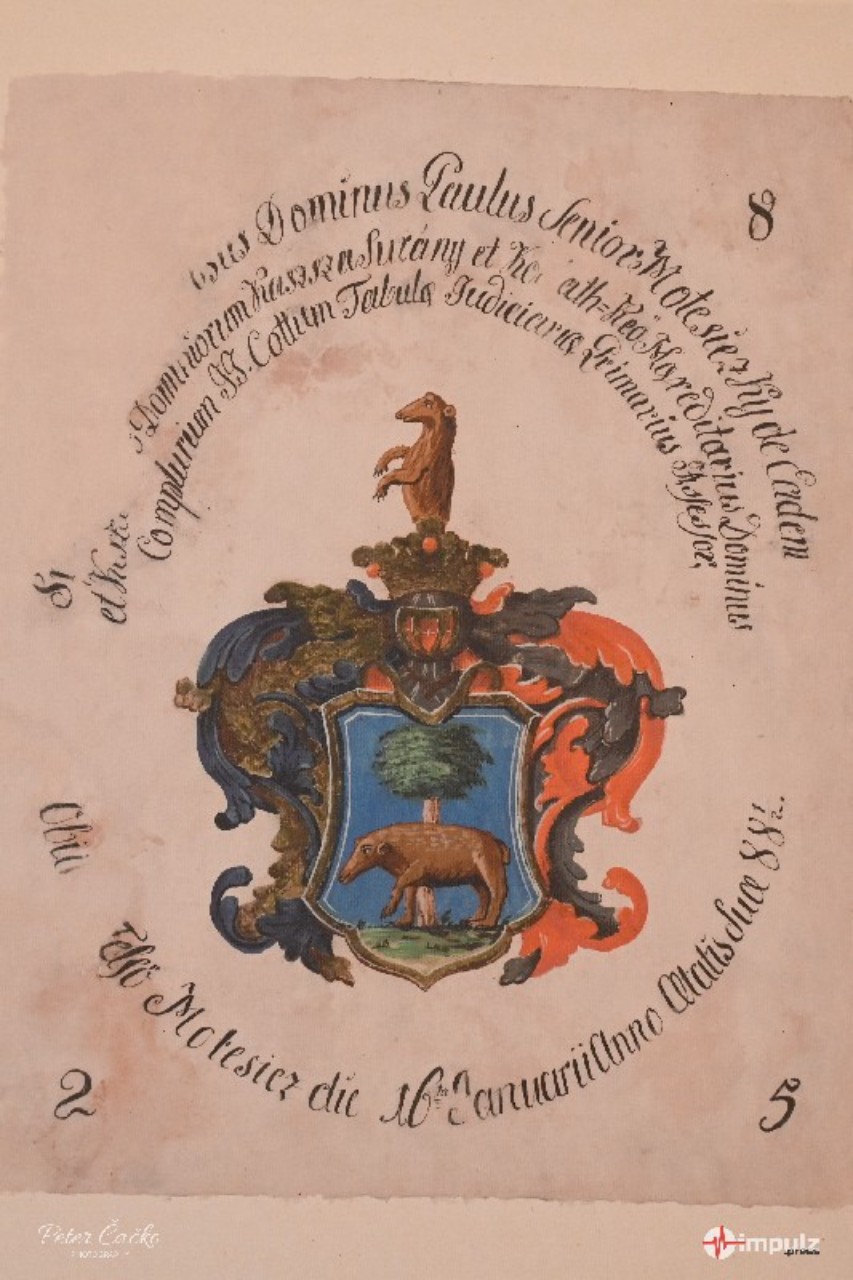 8
Dominus Paulus Senior Motesiczky de Eadem
et Dominiorum Kaszza Surány et Hæreditarius Dominus
Complurium JJ. Cottum Tabulæ Judiciariæ Primarius Assessor,
Motesicz die 16ta Januarii Anno Ætatis Suæ 88½.
2
5
Peter Čačko
PHOTOGRAPHY
impulz
.press